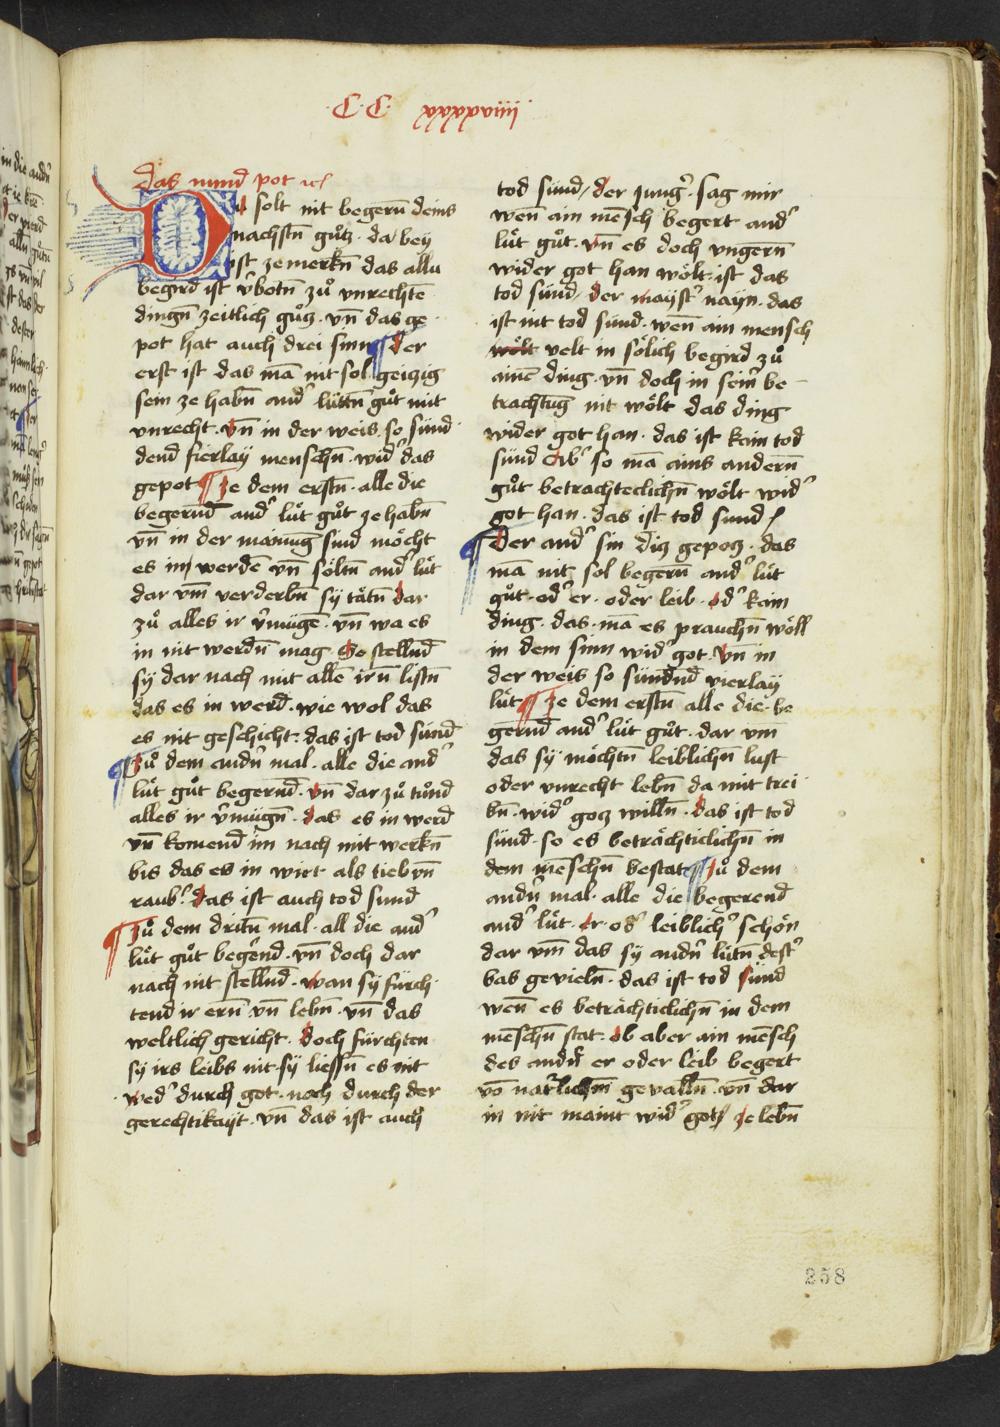 ·C·C· xxxxxviiii·
Das nund pot ich
Du solt nit begern deins
nachstn gutz · da bey
ist ze merkn das allu
begird ist v̉botn zů vnrechtē
dingn zeitlich gůtz · vn̄ das ge
pot hat auch drei sinn ¶ Der
erst ist das mā nit sol geitzig
sein ze habn̄ and̉ lüttn̄ gůt mit
vnrecht · Vn̄ in der weis · so sünd
dend fierlay menschn̄ · wid̉ das
gepot ¶ Ze dem erstn̄ · alle die
begernd and̉ lüt gůt ze habn̄
vn̄ in der mainug sind möcht
es in werdē vn̄ söltn̄ and̉ lüt
dar vm̄ verderbn̄ sy tätn̄ dar
zů alles ir v̉müge · vn̄ wa es
in nit werdn̄ mag · So stellnd
sy dar nach mit allē irn̄ listn̄
das es in werd · wie wol das
es nit geschicht · das ist tod sünd
¶ Zů dem andn̉ mal · alle die and̉
lüt gůt begernd · vn̄ dar zů tůnd
alles ir v̉mügn̄ · das es in werd
vn̄ komend im nach mit werkn̄
bis das es in wirt als tieb vn̄
raub̉ · das ist auch tod sund
¶ Zů dem dritn̄ mal · all die and̉
lüt gůt beg̉end · vn̄ doch dar
nach nit stellnd · wan sy fürch
tend ir ern̄ vn̄ lebn̄ · vn̄ das
weltlich gericht · doch fürchten
sy irs leibs nit · sy liessn̄ es nit
wed̉ durch got · noch durch der
gerechtikayt · vn̄ das ist auch
tod sünd / der jung̉ · sag mir
wen̄ ain mēsch begert and̉
lüt gůt · vn̄ es doch vngern̄
wider got han wölt · ist das
tod sünd / der mayst̉ nayn · das
ist nit tod sünd · wen̄ ain mensch
wölt velt in sölich begird zů
ainē ding · vn̄ doch in sein̉ be
trachtūg nit wölt das ding
wider got han · das ist kain tod
sünd Ab̉ so mā ains andern̄
gůt betrachteclichn̄ wölt wid̉
got han · das ist tod sund /
¶ Der and̉ sin diz gepotz · das
mā nit sol begern̄ and̉ lüt
gůt · od̉ er · oder leib · od̉ kain
ding · das mā es prauchn̄ wöll
in dem sinn wid̉ got · Vn̄ in
der weis so sündnd vierlay
lüt ¶ Ze dem erstn̄ alle die be
gernd and̉ lüt gůt · dar vm
das sy möchtn̄ leiblichn̄ lust
oder vnrecht lebn̄ da mit trei
bn̄ · wid̉ gotz willn̄ · das ist tod
sünd · so es beträchticlichn̄ in
dem mēschn̄ bestat ¶ Zů dem
andn̉ mal · alle die begerend
and̉ lüt · er · od̉ leiblich̉ schön
dar vm̄ das sy andn̉ lütn̄ dest̉
bas gevieln̄ · das ist tod sünd
wen̄ es beträchticlichn̄ in dem
mēschn̄ stat · Ob aber ain mēsch
des andn̉ er oder leib begert
vō nat̉lichm̄ gevalln̄ · vn̄ dar
in nit maint wid̉ got / ze lebn̄
258